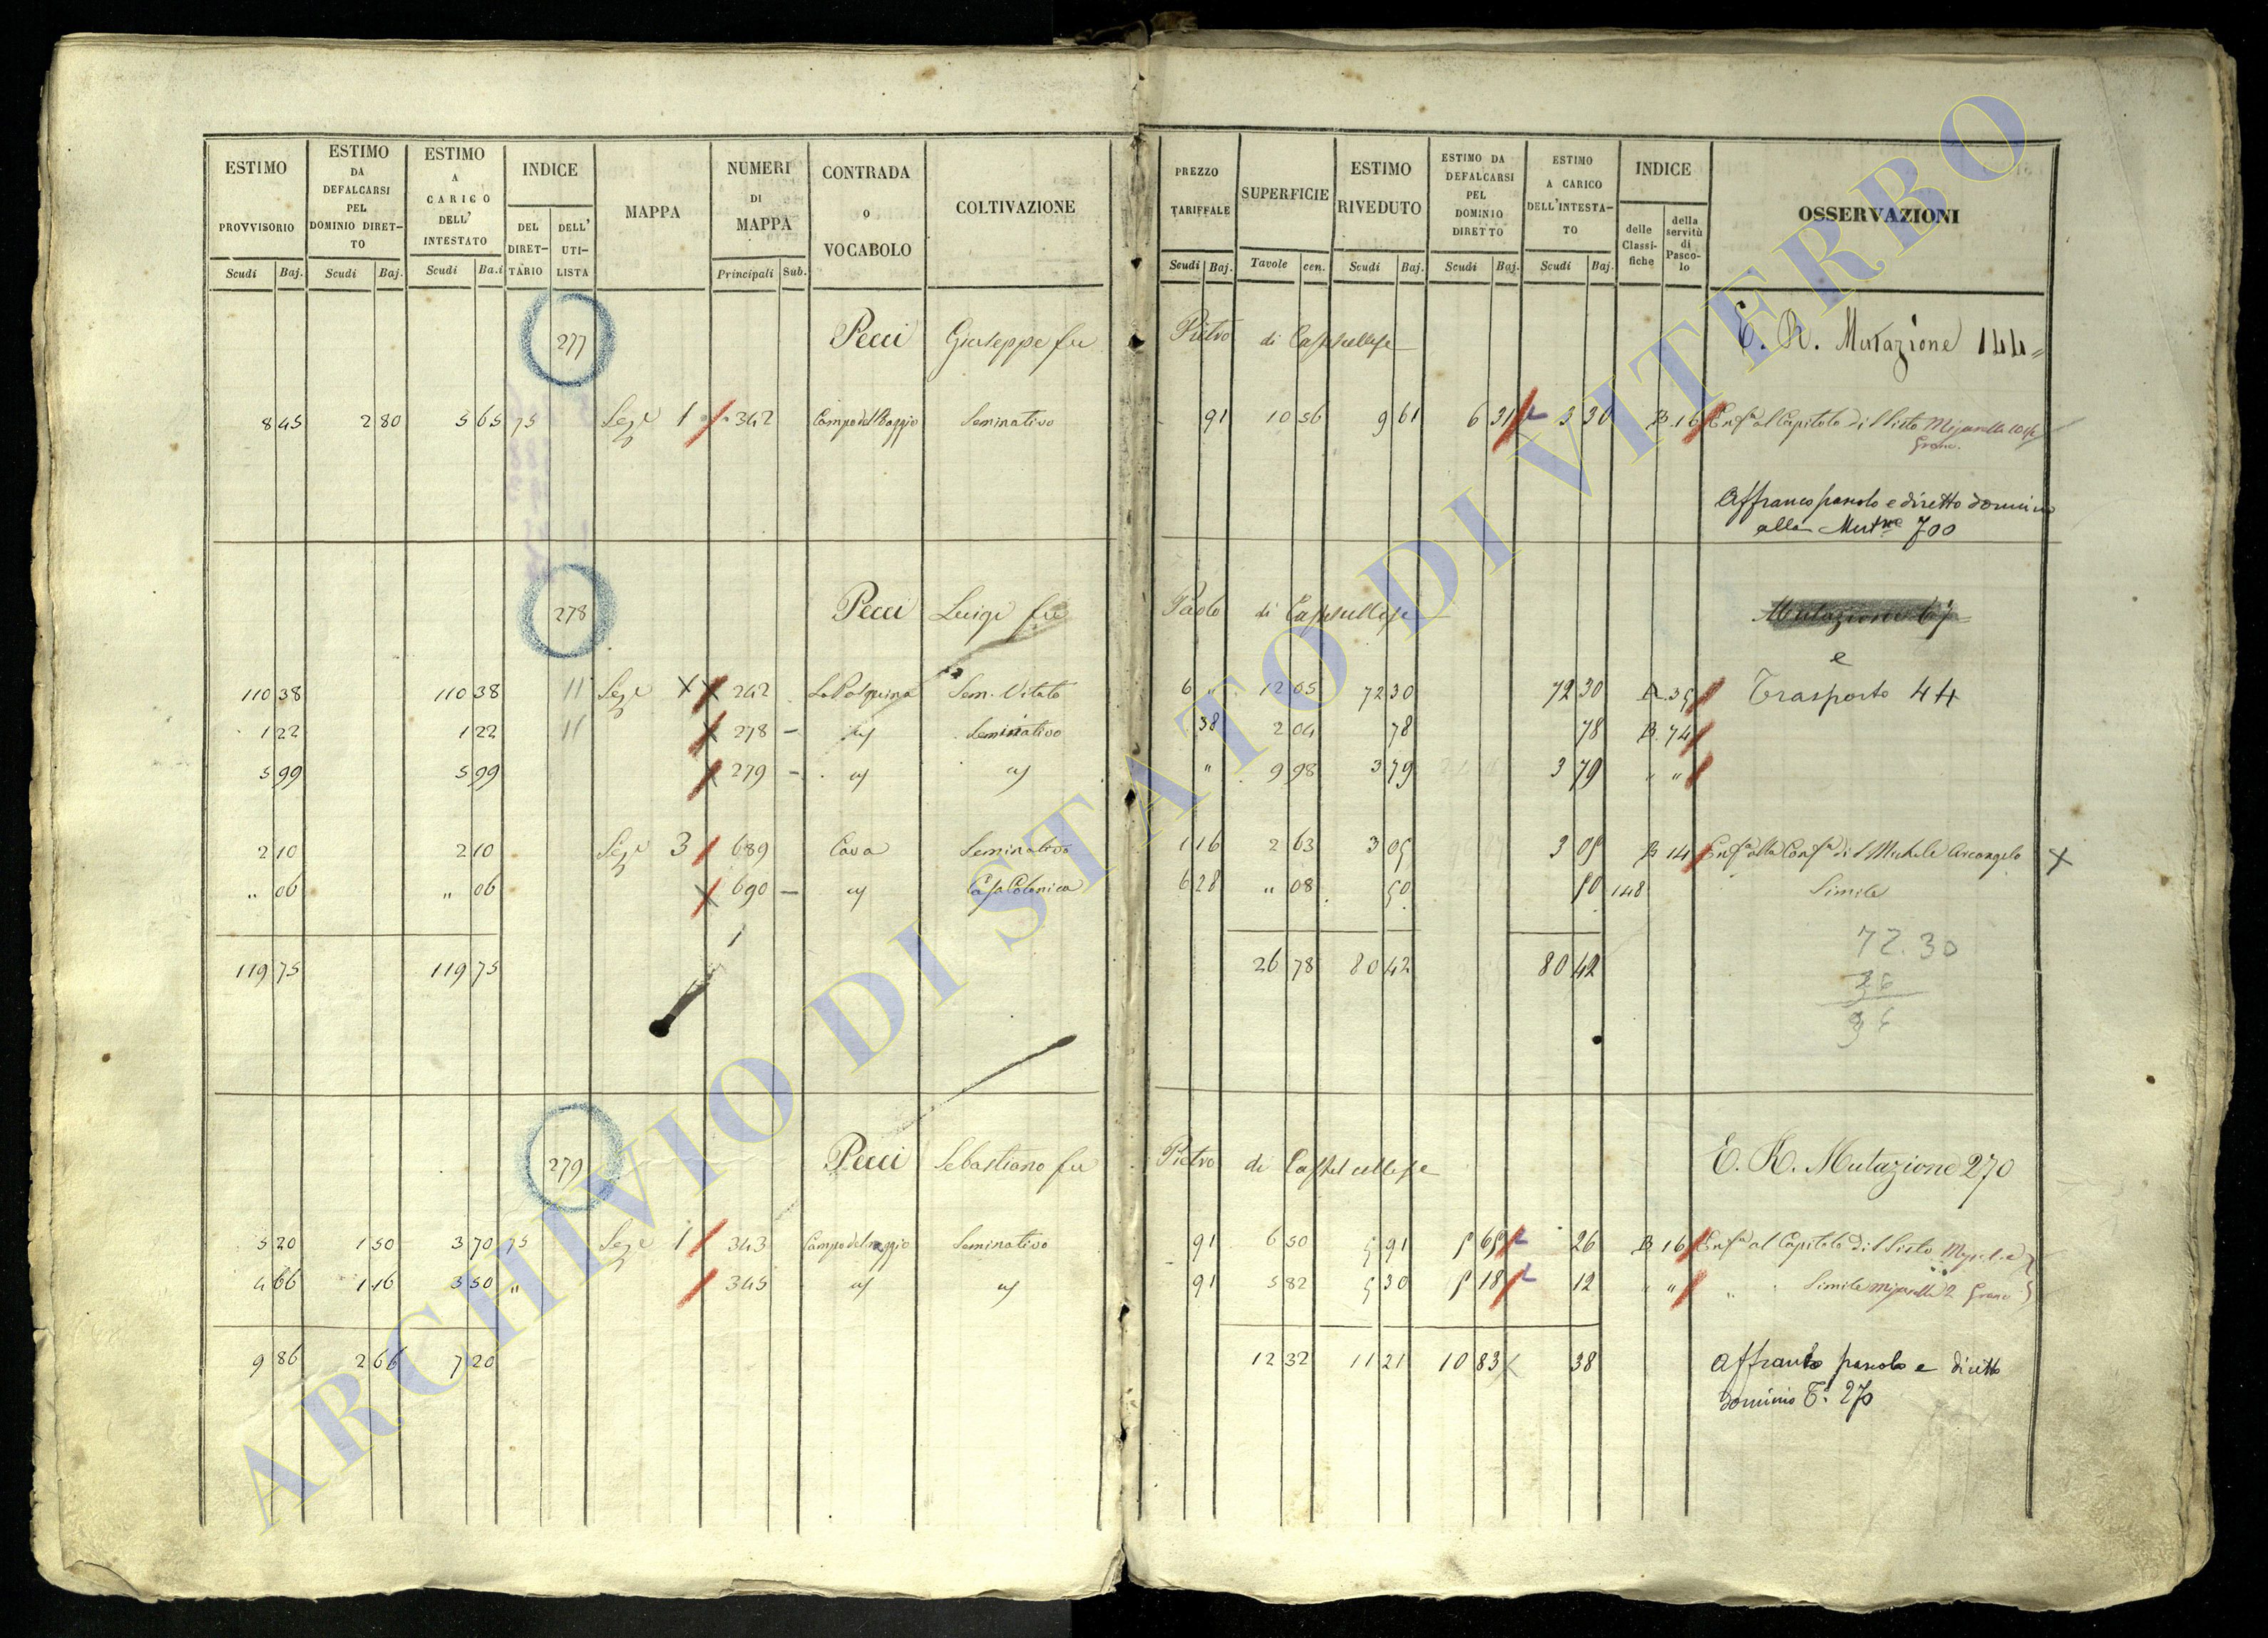 ESTIMO PROVVISORIO Scudi Baj.
ESTIMO DA DEFALCARSI PEL DOMINIO DIRETTO Scudi Baj.
ESTIMO A CARICO DELL' INTESTATO Scudi Ba.i
INDICE DEL DIRETTARIO DELL' UTILISTA
MAPPA
NUMERI DI MAPPA Principali Sub.
CONTRADA O VOCABOLO
COLTIVAZIONE
PREZZO TARIFFALE Scudi Baj.
SUPERFICIE Tavole cen.
ESTIMO RIVEDUTO Scudi Baj.
ESTIMO DA DEFALCARSI PEL DOMINIO DIRETTO Scudi Baj.
ESTIMO A CARICO DELL'INTESTATO Scudi Baj.
INDICE delle Classifiche della servitù di Pascolo
OSSERVAZIONI
277 Pecci Giuseppe fu Pietro di Castelcellese E. R. Mutazione 144=
8 45 2 80 5 65 75 Seze 1 342 Campo del Baggio Seminativo 91 10 56 9 61 6 31 3 30 B. 16 Enfa al Capitolo di S Sisto
Grano.
Affranco pascolo e diretto dominio
alla Mutne 700
278 Pecci Luigi fu Paolo di Castelcellese Mutazione 67
e
110 38 110 38 11 Seze X 242 Sem. Vitato 6 " 12 05 72 30 72 30 A. 35 Trasporto 44
1 22 1 22 11 278 - " Seminativo 38 2 04 78 78 B. 74
5 99 5 99 279 - " " " 9 98 3 79 3 79 " "
2 10 2 10 Seze 3 689 Cava Seminativo 1 16 2 63 3 05 3 05 B 14 Enfa alla Confa di S Michele Arcangelo X
" 06 " 06 690 - " Casa Colonica 6 28 " 08 50 50 148 Simile
119 75 119 75 26 78 80 42 80 42
72.30
36
279 Pecci Sebastiano fu Pietro di Castelcellese E. R. Mutazione 270
5 20 1 50 3 70 75 Seze 1 343 Campo del Baggio Seminativo 91 6 50 5 91 5 65 26 B 16 Enfa al Capitolo di S Sisto
4 66 1 16 3 50 " 345 " " 91 5 82 5 30 5 18 12 " " " Simile 2 Grano
9 86 2 66 7 20 12 32 11 21 10 83 38 Affranco pascolo e diretto
dominio T. 270
ARCHIVIO DI STATO DI VITERBO